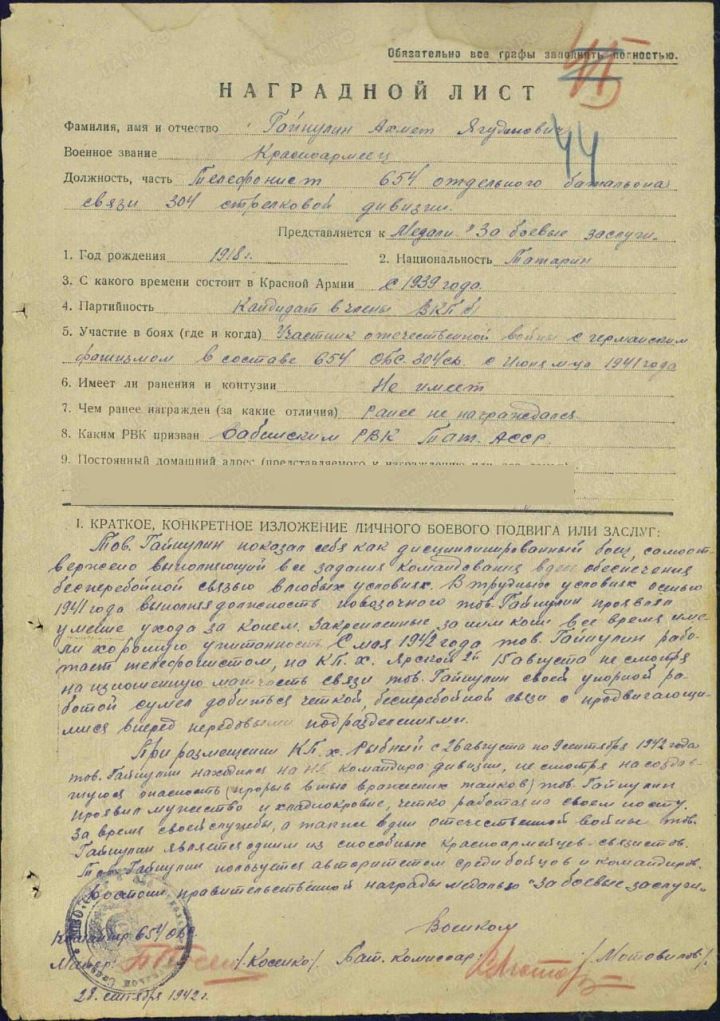 Обязательно все графы заполнять полностью.
НАГРАДНОЙ ЛИСТ
44
Фамилия, имя и отчество Гайнулин Ахмет Ягудинович
Военное звание Красноармеец
Должность, часть Телефонист 654 отдельного батальона
связи 304 стрелковой дивизии.
Представляется к Медали "За боевые заслуги.
1. Год рождения 1918 г. 2. Национальность Татарин
3. С какого времени состоит в Красной Армии с 1939 года.
4. Партийность Кандидат в члены ВКП б
5. Участие в боях (где и когда) Участник отечественной войны с германским
фашизмом в составе 654 ОБС 304 сд. с Июня м-ца 1941 года
6. Имеет ли ранения и контузии Не имеет
7. Чем ранее награжден (за какие отличия) Ранее не награждался
8. Каким РВК призван Сабинским РВК Тат. АССР.
9. Постоянный домашний адрес (представляемого к награждению или его семьи)
I. КРАТКОЕ, КОНКРЕТНОЕ ИЗЛОЖЕНИЕ ЛИЧНОГО БОЕВОГО ПОДВИГА ИЛИ ЗАСЛУГ:
Тов. Гайнулин показал себя как дисциплинированный боец, самоот
вержено выполняющий все задания командования в деле обеспечения
бесперебойной связью в любых условиях. В трудных условиях осенью
1941 года выполняя должность повозочного тов. Гайнулин проявлял
умение ухода за конем. Закрепленные за ним кони все время име
ли хорошую упитанность. С мая 1942 года тов. Гайнулин рабо
тает телефонистом, на КП. х. Ярской 2й 15 августа не смотря
на изношенную матчасть связи тов. Гайнулин своей упорной ра
ботой сумел добиться четкой, бесперебойной связи с продвигающи
мися вперед передовыми подразделениями.
При размещении КП. х. Рыбный с 26 августа по 9 сентября 1942 года
тов. Гайнулин находился на НП командира дивизии, не смотря на создав
шуюся опасность (прорыв в тыл вражеских танков) тов. Гайнулин
проявил мужество и хладнокровие, четко работая на своем посту.
За время своей службы, а также в дни отечественной войны тов.
Гайнулин является одним из способных красноармейцев-связистов.
Тов. Гайнулин пользуется авторитетом среди бойцов и командиров.
Достоин правительственной награды медалью "За боевые заслуги".
Командир 654 ОБС Военком
Майор /Косенко/ Бат. комиссар /Мотовилов/
28 сентября 1942 г.